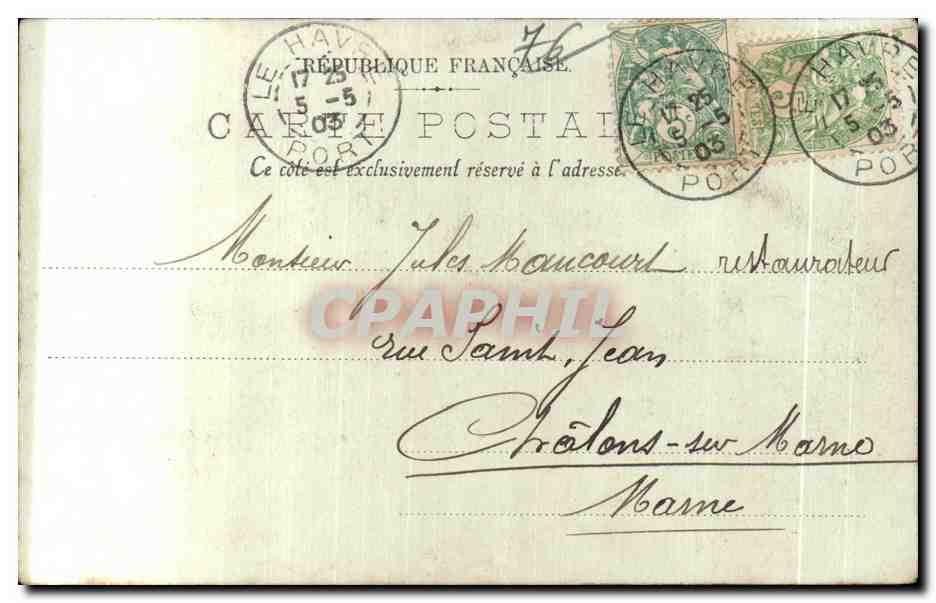 76
RÉPUBLIQUE FRANÇAISE
CARTE POSTAL
Ce côté est exclusivement réservé à l'adresse
LE HAVRE
17 25
5 -5
03
PORT
LE HAVRE
17 25
5 5
03
PORT
POSTES
LE HAVRE
17 25
5 5
03
PORT
Monsieur Jules Maucourt restaurateur
CPAPHIL
rue Saint, Jean
Châlons-sur Marne
Marne